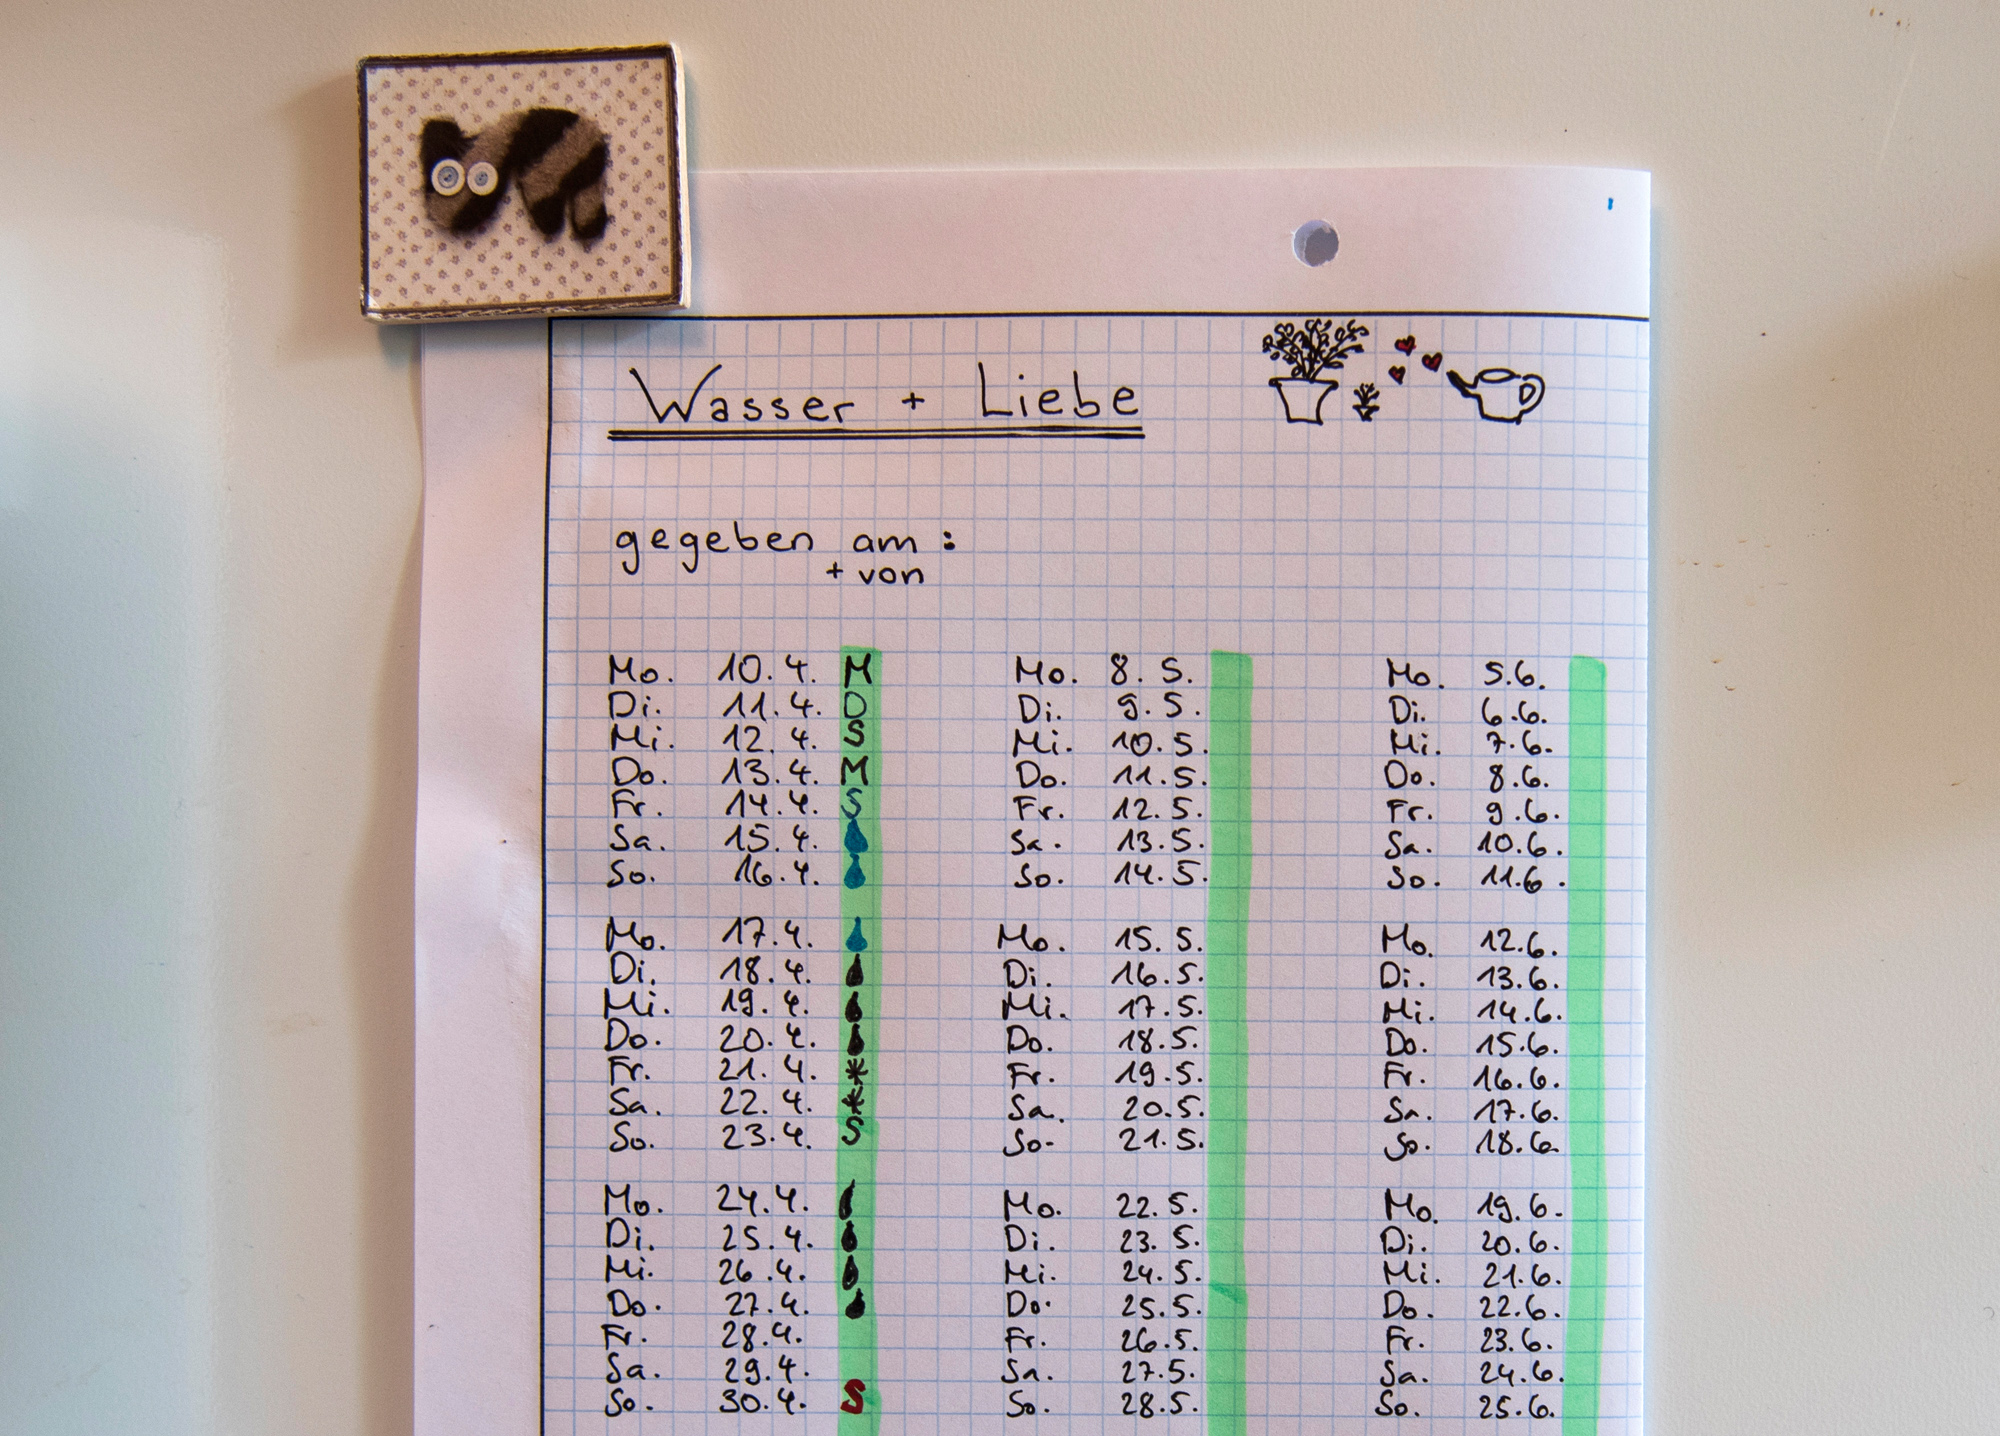 Wasser + Liebe
gegeben am :
+ von
Mo. 10.4. M Mo. 8.5. Mo. 5.6.
Di. 11.4. D Di. 9.5. Di. 6.6.
Mi. 12.4. S Mi. 10.5. Mi. 7.6.
Do. 13.4. M Do. 11.5. Do. 8.6.
Fr. 14.4. S Fr. 12.5. Fr. 9.6.
Sa. 15.4. Sa. 13.5. Sa. 10.6.
So. 16.4. So. 14.5. So. 11.6.
Mo. 17.4. Mo. 15.5. Mo. 12.6.
Di. 18.4. Di. 16.5. Di. 13.6.
Mi. 19.4. Mi. 17.5. Mi. 14.6.
Do. 20.4. Do. 18.5. Do. 15.6.
Fr. 21.4. * Fr. 19.5. Fr. 16.6.
Sa. 22.4. * Sa. 20.5. Sa. 17.6.
So. 23.4. S So. 21.5. So. 18.6.
Mo. 24.4. Mo. 22.5. Mo. 19.6.
Di. 25.4. Di. 23.5. Di. 20.6.
Mi. 26.4. Mi. 24.5. Mi. 21.6.
Do. 27.4. Do. 25.5. Do. 22.6.
Fr. 28.4. Fr. 26.5. Fr. 23.6.
Sa. 29.4. Sa. 27.5. Sa. 24.6.
So. 30.4. S So. 28.5. So. 25.6.